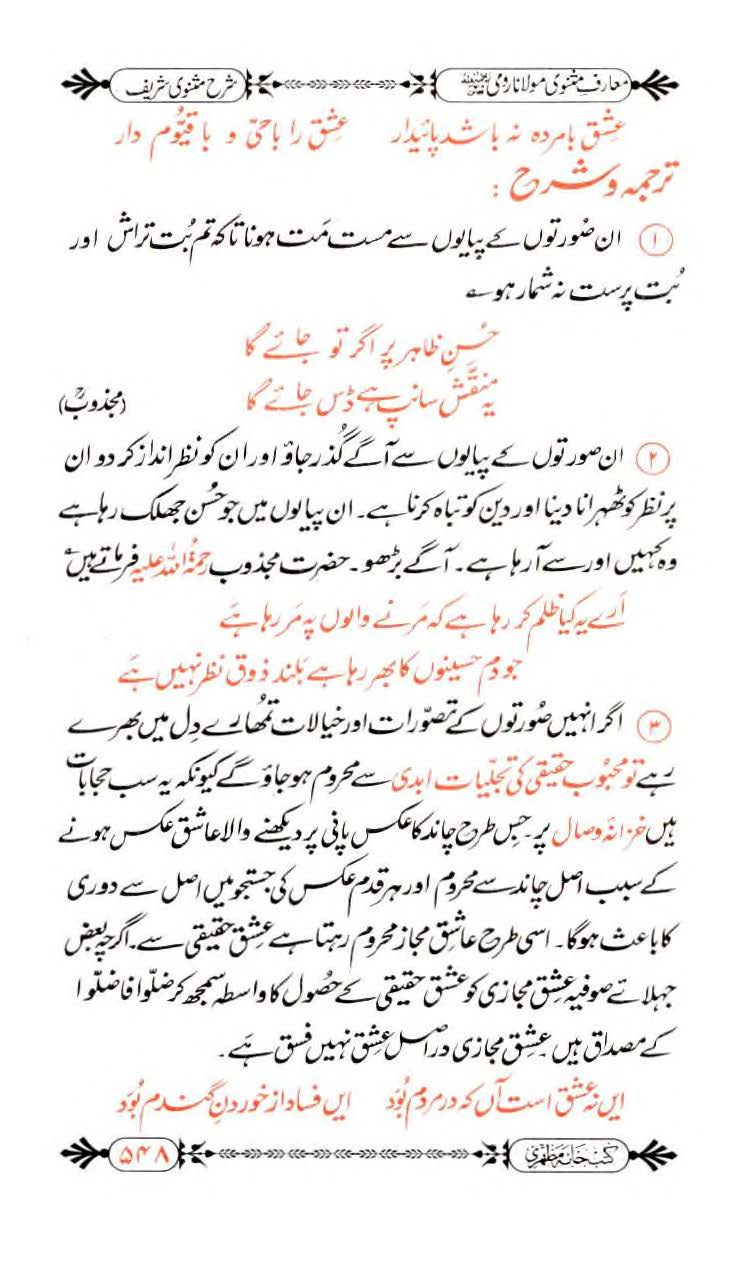 معارفِ مثنوی مولانا رومی شرح مثنوی شریف
عشق بامردہ نہ باشد پائیدار عشق را باحیّ و با قیّوم دار
ترجمہ و شرح :
۱ ان صُورتوں کے پیالوں سے مست مَت ہونا تاکہ تم بُت تراش اور
بُت پرست نہ شمار ہو ؎
حُسنِ ظاہر پر اگر تو جائے گا
یہ منقّش سانپ ہے ڈس جائے گا (مجذوبؒ)
۲ ان صورتوں کے پیالوں سے آگے گُذر جاؤ اور ان کو نظر انداز کر دو ان
پر نظر کو ٹھہرانا دینا اور دین کو تباہ کرنا ہے۔ ان پیالوں میں جو حُسن جھلک رہا ہے
وہ کہیں اور سے آرہا ہے۔ آگے بڑھو۔ حضرت مجذوب رحمۃُ اللہ علیہ فرماتے ہیں ؎
اَرے یہ کیا ظلم کر رہا ہے کہ مَرنے والوں پہ مَر رہا ہَے
جو دم حسینوں کا بھر رہا ہے بَلند ذوق نظر نہیں ہَے
۳ اگر انہیں صُورتوں کے تصوّرات اور خیالات تمُھارے دِل میں بھرے
رہے تو محبُوب حقیقی کی تجلّیات ابدی سے محروم ہو جاؤ گے کیونکہ یہ سب حجابات
ہیں خزانۂ وصال پر۔ جس طرح چاند کا عکس پانی پر دیکھنے والا عاشق عکس ہونے
کے سبب اصل چاند سے محروم اور ہر قدم عکس کی جستجو میں اصل سے دوری
کا باعث ہوگا۔ اسی طرح عاشق مجاز محروم رہتا ہے عشق حقیقی سے۔ اگرچہ بعض
جہلائے صوفیہ عشق مجازی کو عشق حقیقی کے حصُول کا واسطہ سمجھ کر ضلّوا فاضلّوا
کے مصداق ہیں۔ عشق مجازی دراصل عشق نہیں فسق ہَے۔
ایں نہ عشق است آں کہ در مردم بُوَد ایں فساد از خوردنِ گندم بُوَد
کتب خانہ مظہری ۵۴۸